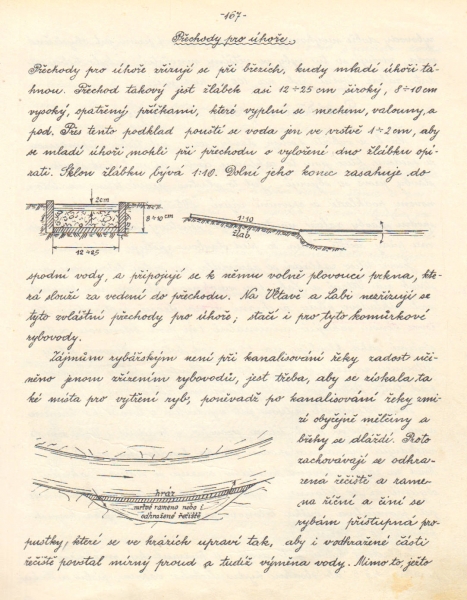 -167-
Přechody pro úhoře.
Přechody pro úhoře zřizují se při březích, kudy mladí úhoři tá-
hnou. Přechod takový jest žlábek asi 12÷25 cm široký, 8÷10cm
vysoký, opatřený příčkami, které vyplní se mechem, valouny, a
pod. Přes tento podklad pouští se voda jen ve vrstvě 1÷2cm, aby
se mladí úhoři mohli při přechodu o vyložení dno žlábku opí-
rati. Sklon žlábku bývá 1:10. Dolní jeho konec zasahuje do
2cm
8÷10 cm
12÷25
1:10
žlab.
spodní vody, a připojují se k němu volně plovoucí prkna, kte-
rá slouží za vedení do přechodu. Na Vltavě a Labi nezřizují se
tyto zvláštní přechody pro úhoře; stačí i pro tyto komůrkové
rybovody.
Zájmům rybářským není při kanalisování řeky radost uči-
něno jenom zřízením rybovodů, jest třeba, aby se získala ta
ké místa pro vytření ryb, poněvadž po kanalisování řeky zmi-
zí obyčejně mělčiny a
břehy se dláždí. Proto
zachovávají se odhra-
zená řečiště a rame-
na říční a činí se
rybám přístupná pro-
hráz
mrtvé rameno nebo i
odhražené řečiště
pustky, které se ve hrázích upraví tak, aby i v odhražené části
řečiště povstal mírný proud a tudíž výměna vody. Mimo to, ježto